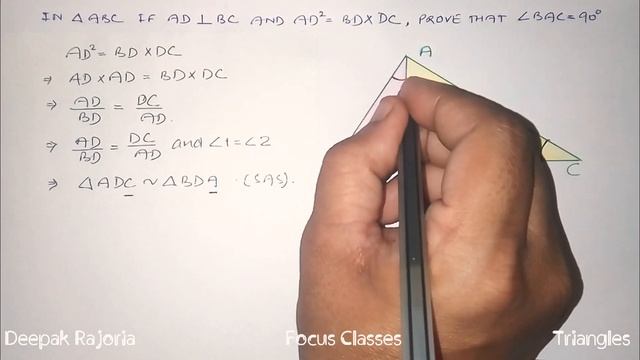 IN △ABC IF AD⊥BC AND AD²= BD×DC, PROVE THAT ∠BAC=90°
AD²= BD×DC
⇒ AD×AD = BD×DC
⇒ AD/BD = DC/AD.
⇒ AD/BD = DC/AD and ∠1=∠2
⇒ △ADC ~ △BDA. (SAS).
A
C
Deepak Rajoria
Focus Classes
Triangles